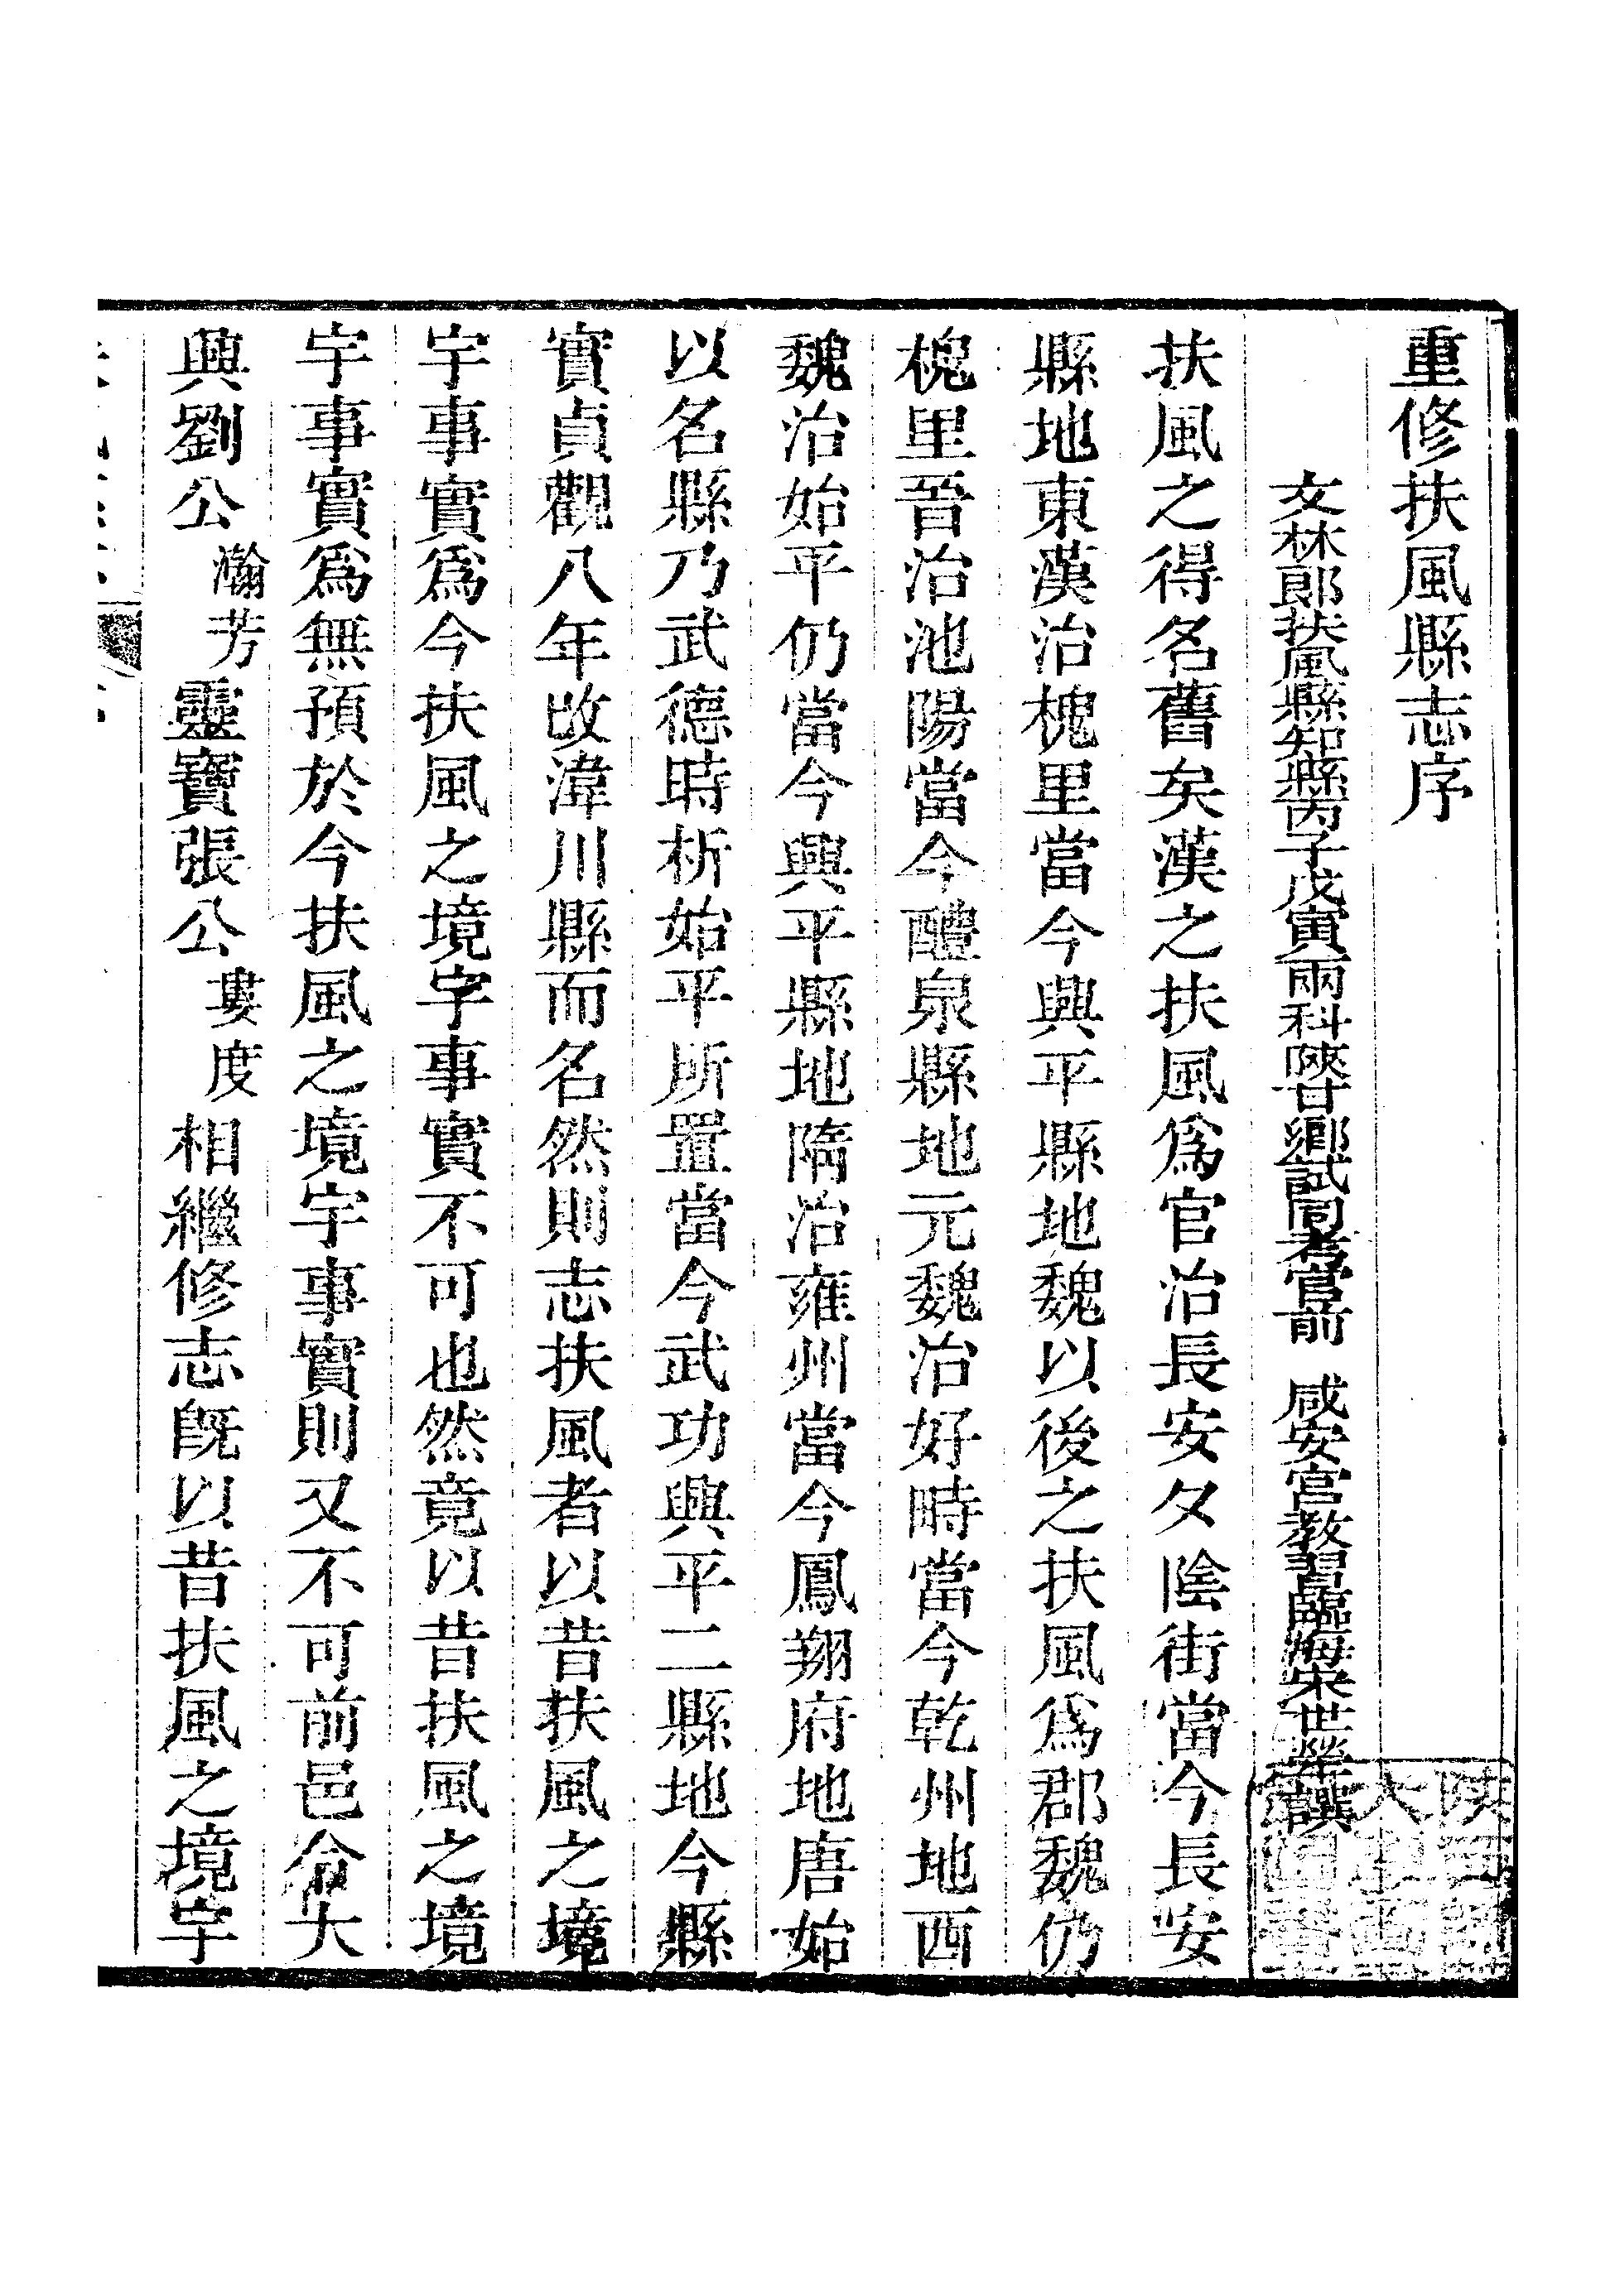 重修扶風縣志序
文林郎扶風縣知縣丙子戊寅兩科陝甘鄉試同考官前 咸安宮教習臨海宋世犖譔
扶風之得名舊矣漢之扶風爲官治長安夕陰街當今長安
縣地東漢治槐里當今興平縣地魏以後之扶風爲郡魏仍
槐里晉治池陽當今醴泉縣地元魏治好畤當今乾州地西
魏治始平仍當今興平縣地隋治雍州當今鳳翔府地唐始
以名縣乃武德時析始平所置當今武功興平二縣地今縣
實貞觀八年改湋川縣而名然則志扶風者以昔扶風之境
宇事實爲今扶風之境宇事實不可也然竟以昔扶風之境
宇事實爲無預於今扶風之境宇事實則又不可前邑令大
興劉公瀚芳靈寶張公婁度相繼修志旣以昔扶風之境宇